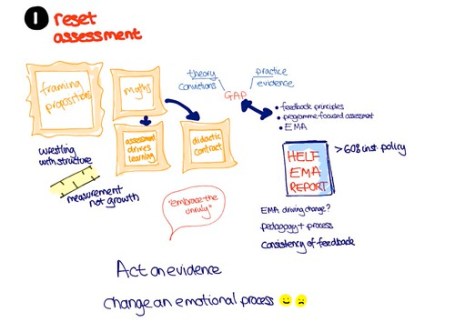 1 reset
assessment
framing
propositions
myths
theory
convictions
practice
evidence
GAP
• feedback principles
• programme-focused assessment
• EMA
assessment
drives
learning
didactic
contract
wrestling
with structure
measurement
not growth
"embrace the
unruly"
HELF
EMA
REPORT
>60% inst. policy
EMA driving change?
pedagogy + process
consistency of feedback
Act on evidence
change an emotional process